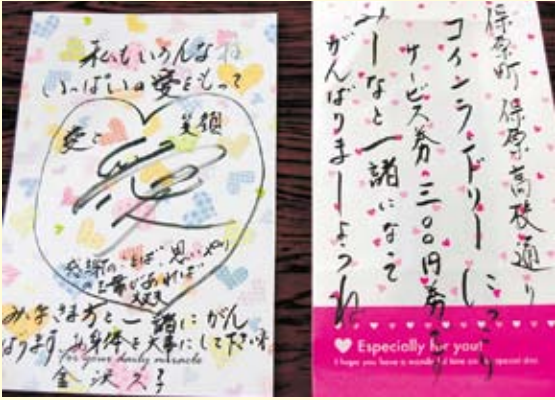 私もいろんなね
いっぱいの愛をもって
愛と
笑顔
愛
感謝のことば、思いやり
の言葉があれば
大丈夫
みなさま方と一諸にがん
ばります。お身体を大事にして下さいネ
for your daily miracle
金沢
保原町 保原高校通り
コインランドリー
サービス券三〇〇円券
みーなと一諸になって
がんばりましょうね
Especially for you!
I hope you have a wonderful time on this special day.